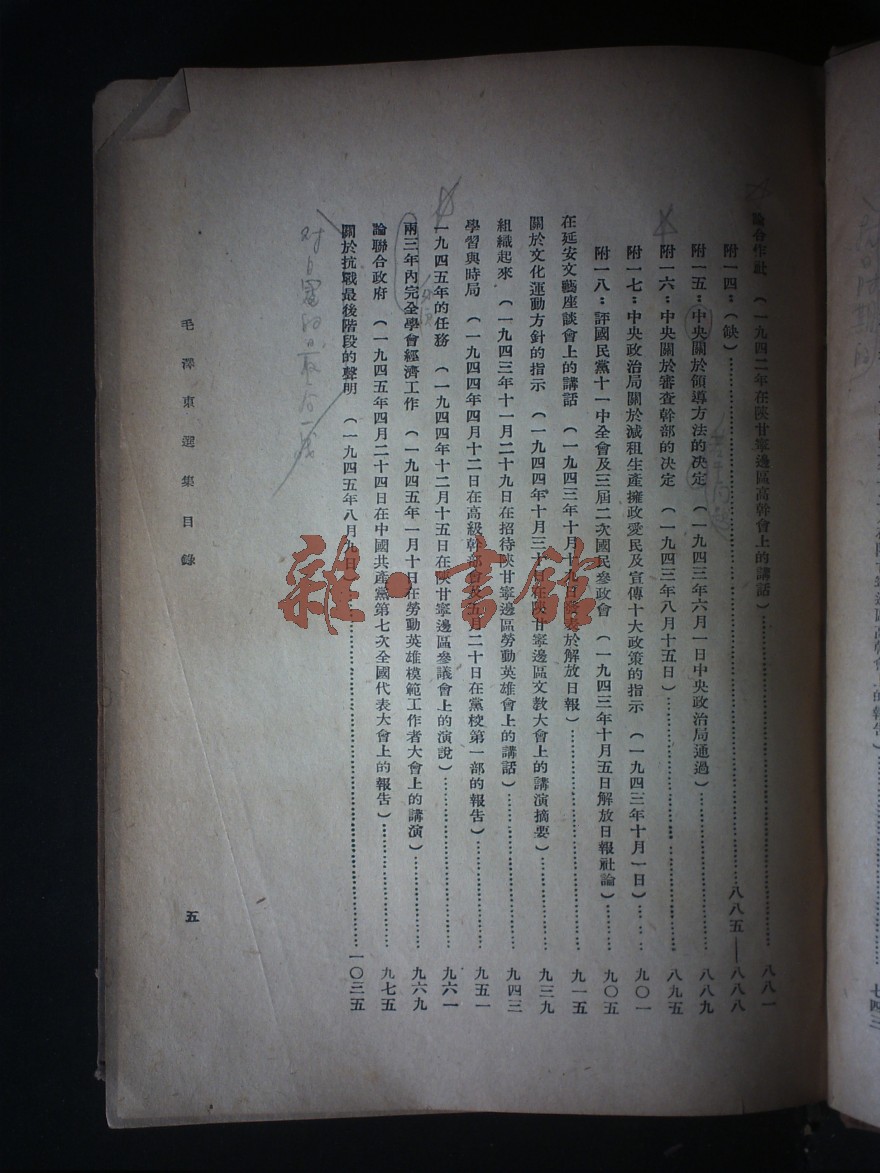 論合作社 (一九四二年在陝甘寧邊區高幹會上的講話)……八八一
附一四：(缺)……八八五—八八八
附一五：中央關於領導方法的决定 (一九四三年六月一日中央政治局通過)……八八九
附一六：中央關於審查幹部的决定 (一九四三年八月十五日)……八九五
附一七：中央政治局關於減租生產擁政愛民及宣傳十大政策的指示 (一九四三年十月一日)……九〇一
附一八：評國民黨十一中全會及三屆二次國民參政會 (一九四三年十月五日解放日報社論)……九〇五
在延安文藝座談會上的講話 (一九四三年十月十九日發表於解放日報)……九一五
關於文化運動方針的指示 (一九四四年十月三十日在陝甘寧邊區文教大會上的講演摘要)……九三九
組織起來 (一九四三年十一月二十九日在招待陝甘寧邊區勞動英雄會上的講話)……九四三
學習與時局 (一九四四年四月十二日在高級幹部會及五月二十日在黨校第一部的報告)……九五一
一九四五年的任務 (一九四四年十二月十五日在陝甘寧邊區參議會上的演說)……九六一
兩三年內完全學會經濟工作 (一九四五年一月十日在勞動英雄模範工作者大會上的講演)……九六九
論聯合政府 (一九四五年四月二十四日在中國共產黨第七次全國代表大會上的報告)……九七五
關於抗戰最後階段的聲明 (一九四五年八月九日)……一〇三五
毛澤東選集目錄
五
雜·書館